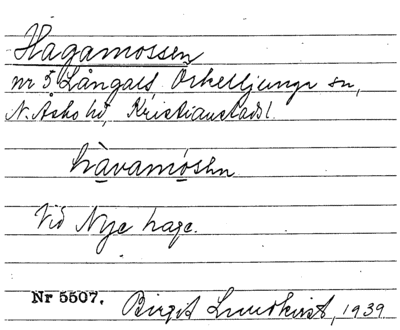 Hagamossen
nr 5 Långalt, Örkelljunga sn,
N. Åsbo hd, Kristianstads l.
hàvamósen
Vid Nye hage.
Nr 5507. Birgit Lundkvist, 1939